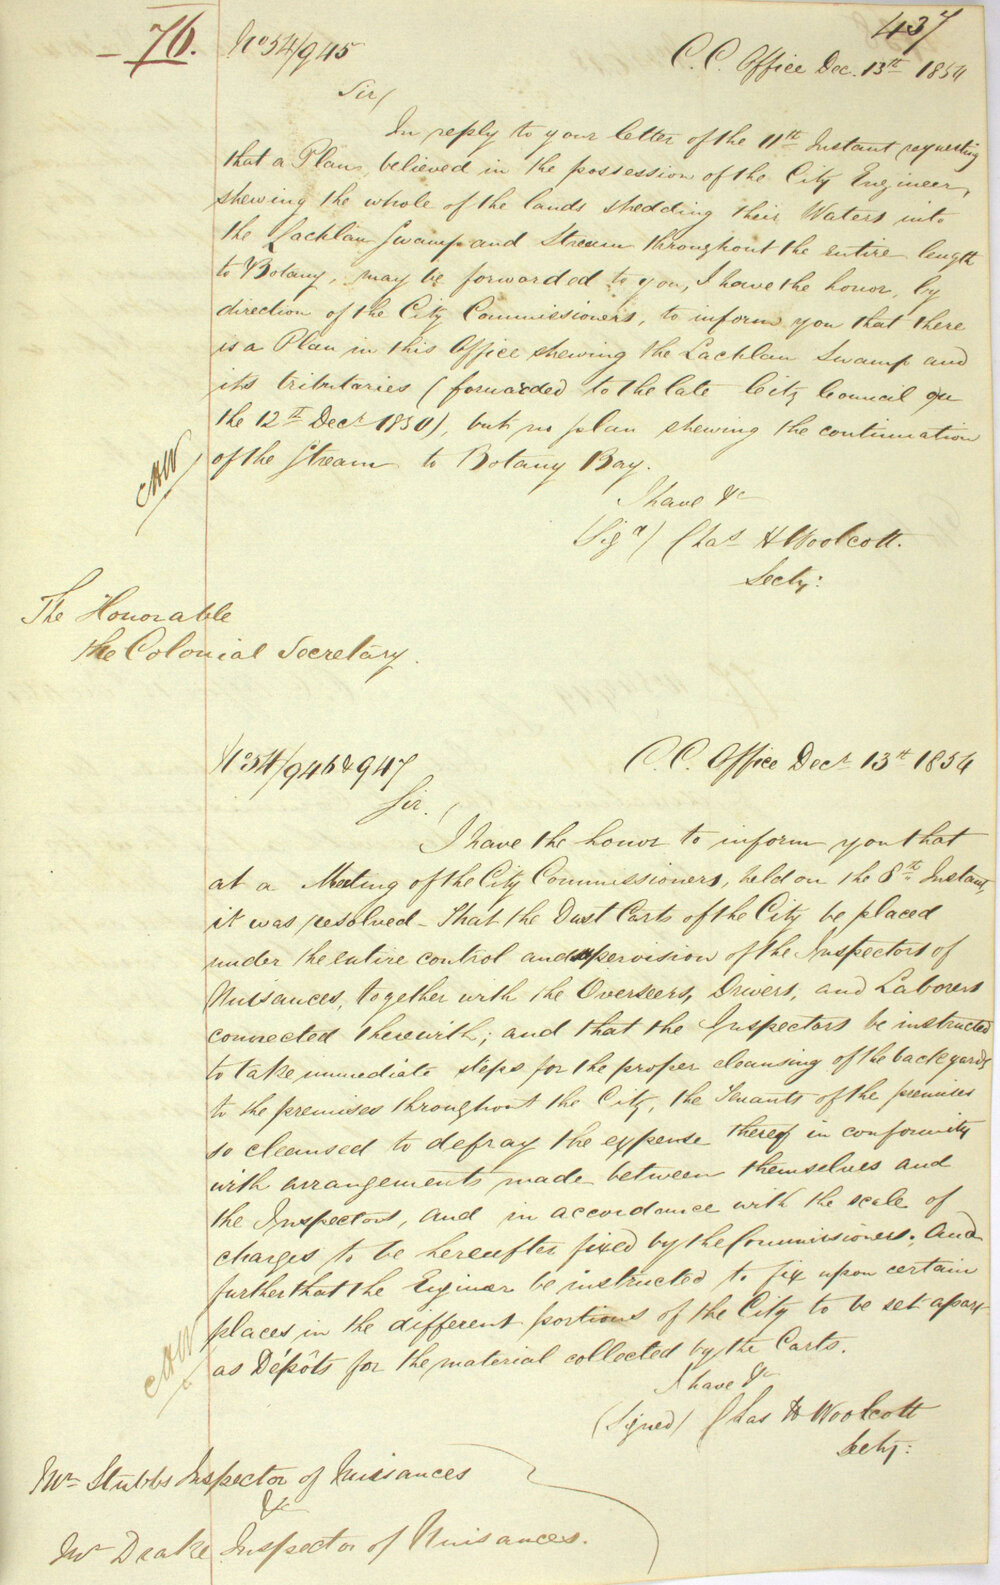 437
76.
No 54/945
C. C. Office Dec. 13th 1854
Sir/
In reply to your letter of the 11th Instant requesting
that a Plan, believed in the possession of the City Engineer,
shewing the whole of the lands shedding their Waters into
the Lachlan Swamp and Stream throughout the entire length
to Botany, may be forwarded to you, I have the honor, by
direction of the City Commissioners, to inform you that there
is a Plan in this Office shewing the Lachlan Swamp and
its tributaries (forwarded to the late City Council on
the 12th Decr 1850), but no plan shewing the continuation
of the Stream to Botany Bay.
CHW
I have &c
(Sigd) Chas H Woolcott.
Secty:
The Honorable
the Colonial Secretary.
No 54/946 & 947
C. C. Office Decr 13th 1854
Sir.
I have the honor to inform you that
at a Meeting of the City Commissioners, held on the 8th Instant,
it was resolved - That the Dust Carts of the City be placed
under the entire control and supervision of the Inspectors of
Nuisances, together with the Overseers, Drivers, and Laborers
connected therewith; and that the Inspectors be instructed
to take immediate steps for the proper cleansing of the back yards
to the premises throughout the City, the Tenants of the premises
so cleansed to defray the expense thereof in conformity
with arrangements made between themselves and
the Inspectors, and in accordance with the scale of
charges to be hereafter fixed by the Commissioners. And
further that the Engineer be instructed to fix upon certain
places in the different portions of the City to be set apart
as Dépôts for the material collected by the Carts.
CHW
I have &c
(Signed) Chas H Woolcott
Secty:
Mr Stubbs Inspector of Nuisances
&c
Mr Drake Inspector of Nuisances.